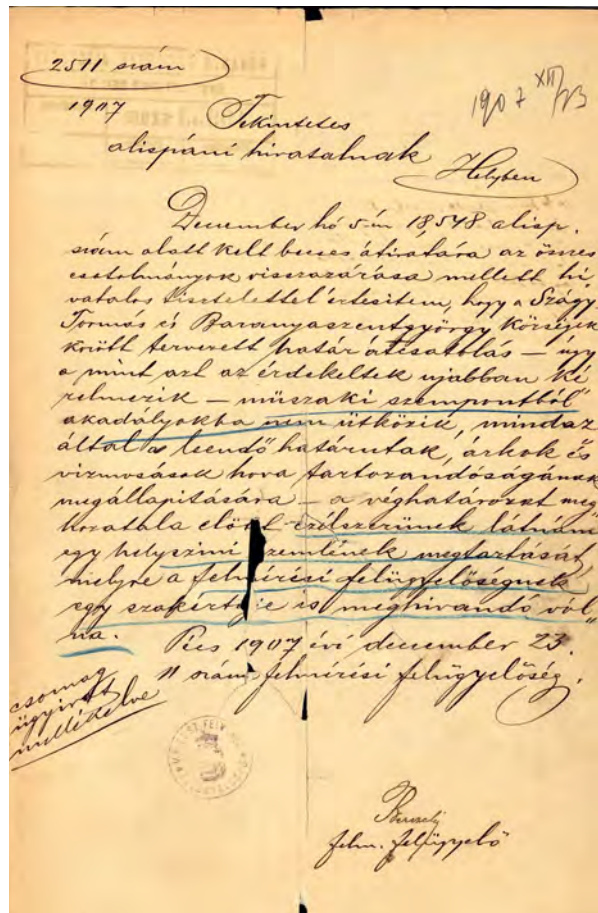 2511 szám
1907
1907 XII/23
Tekintetes
alispáni hivatalnak
Helyben
December hó 5-én 18,548 alisp.
szám alatt kelt becses átiratára az összes
csatolmányok visszazárása mellett hi-
vatalos tisztelettel értesitem, hogy a Szágy
Tormás és Baranyaszentgyörgy községek
között tervezett határ átcsatolás – úgy
a mint azt az érdekeltek ujabban ké
relmezik – müszaki szempontból
akadályokba nem ütközik, mindaz
által a leendő határutak, árkok és
vizmosások hova tartozandóságának
megállapitására – a véghatározat meg
hozatala előtt czélszerünek látnám
egy helyszini szemlének megtartását,
melyre a felmérési felügyelőségnek
egy szakértője is meghivandó vol„
na.
Pécs 1907 évi december 23.
11 szám. felmérési felügyelőség.
csomag
ügyirat
mellékelve
felm. felügyelő